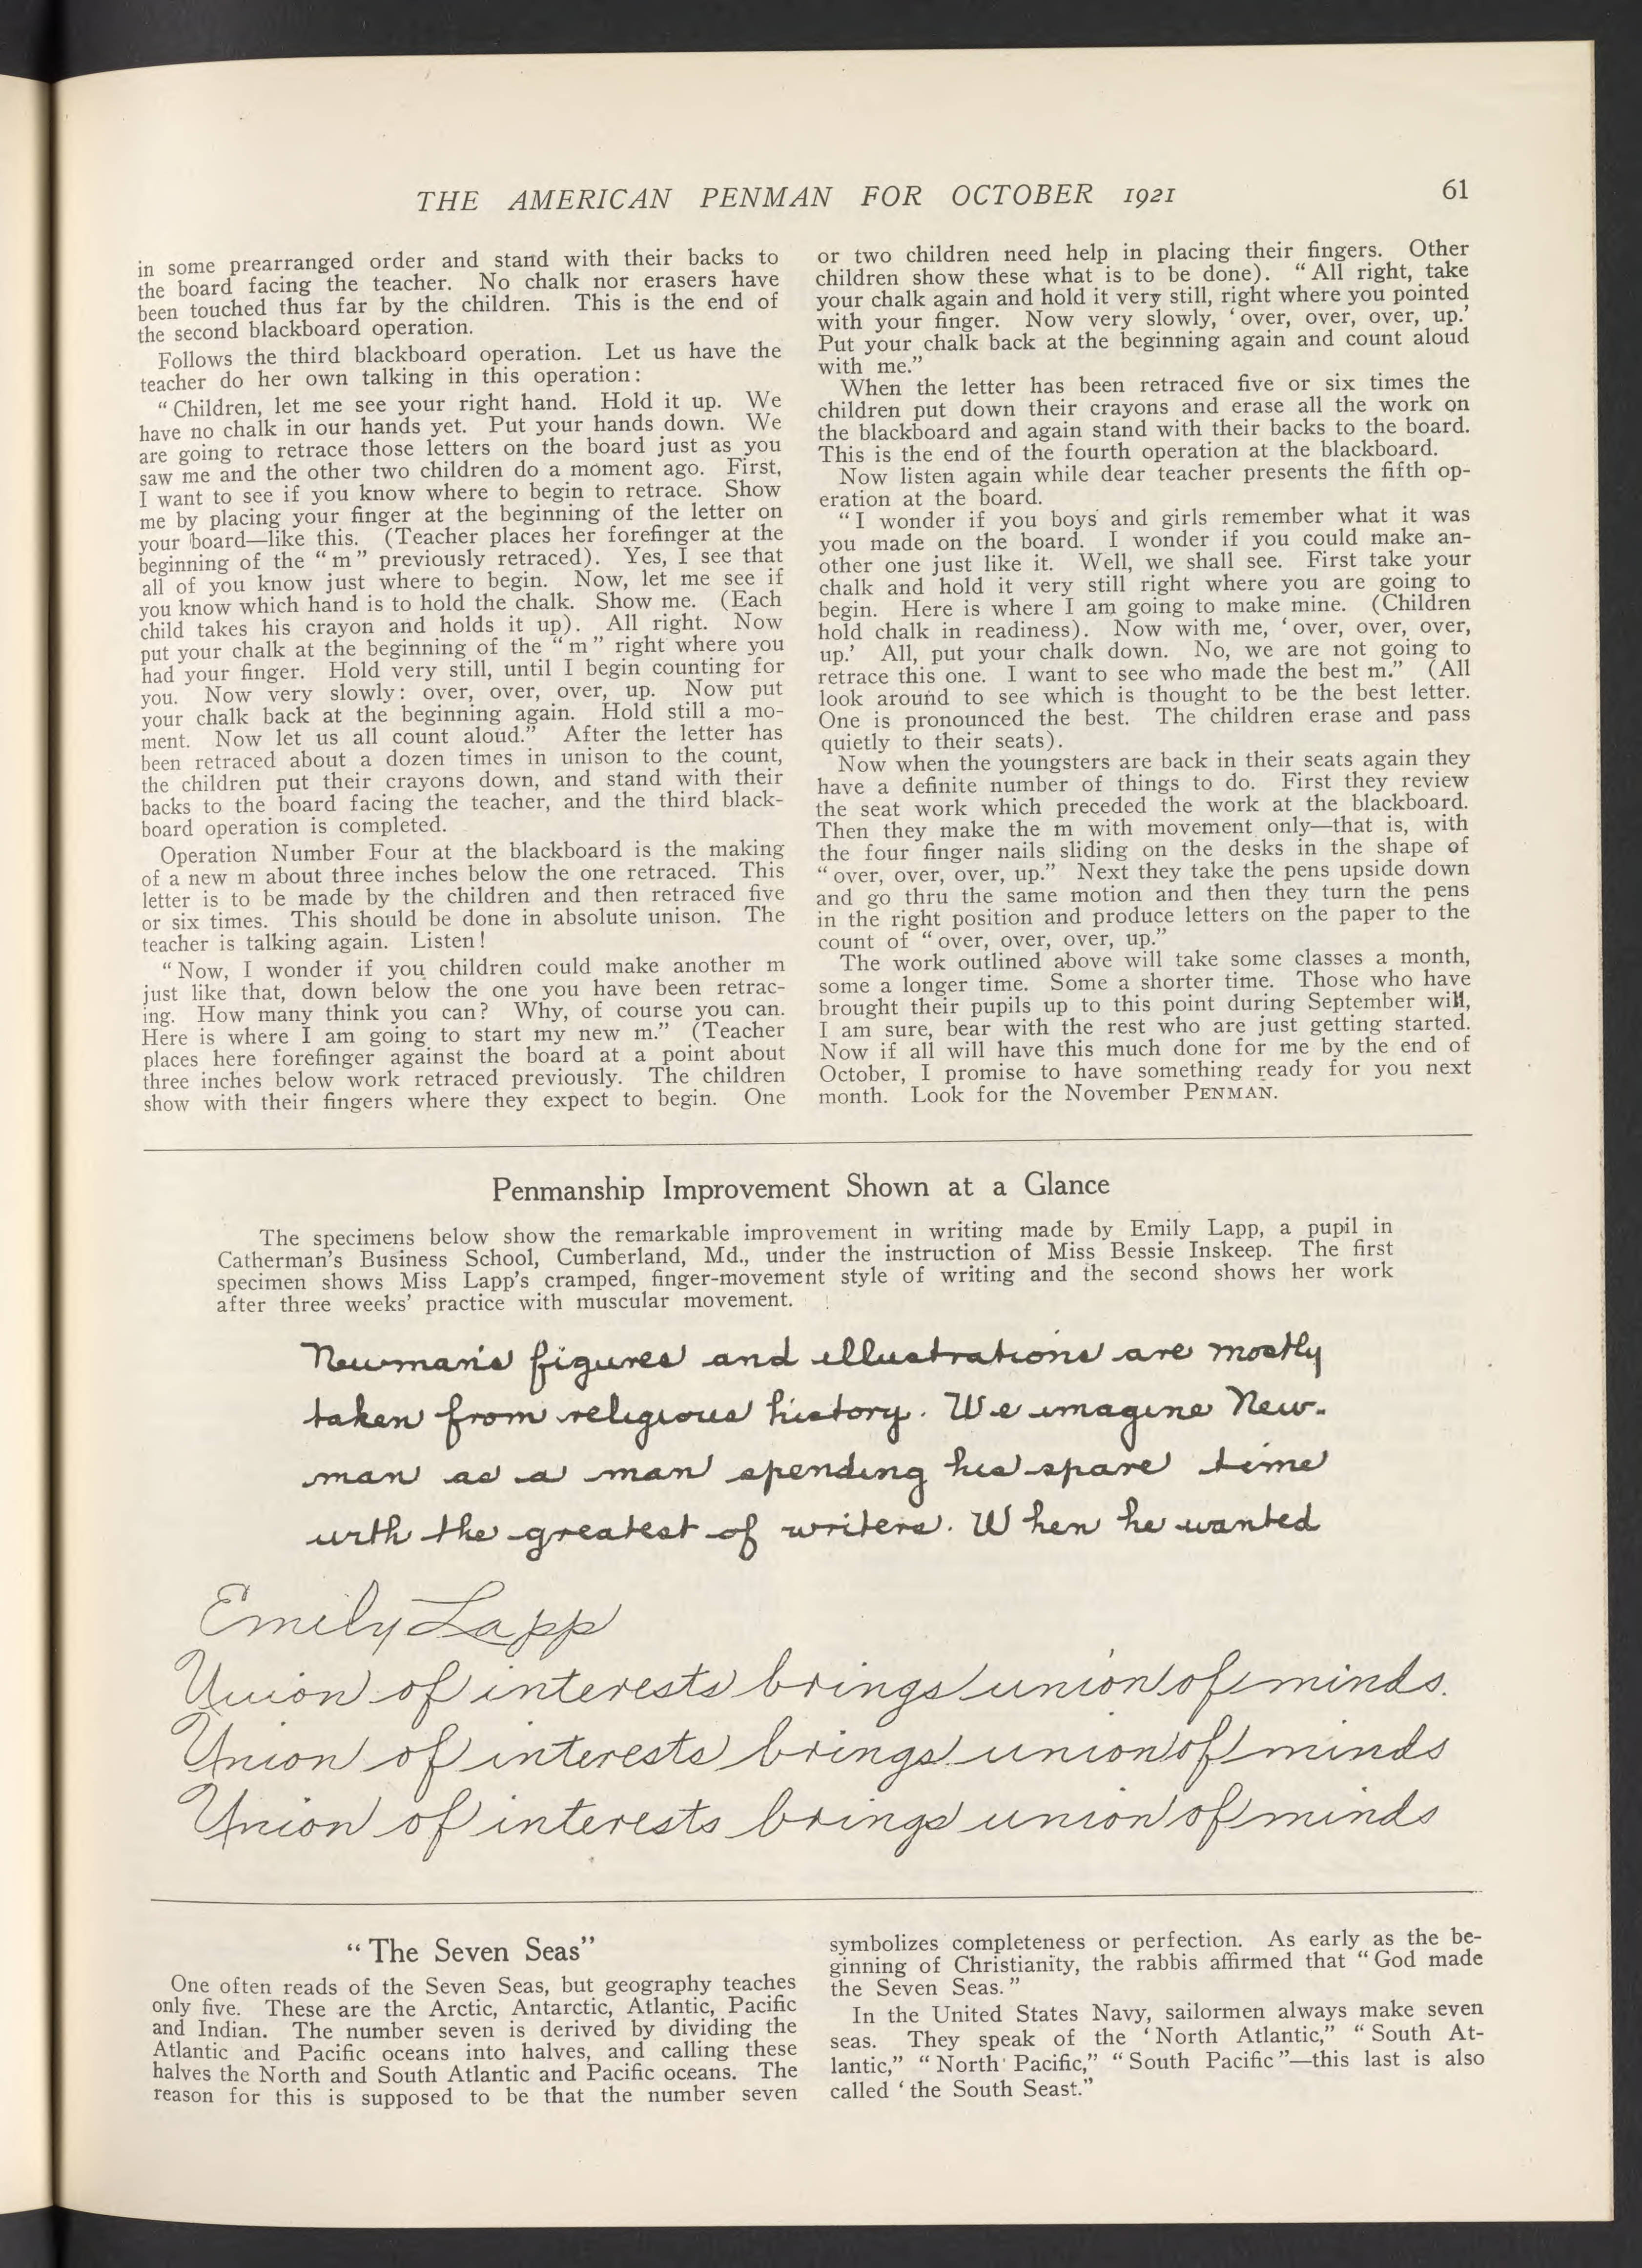 THE AMERICAN PENMAN FOR OCTOBER 1921
61
in some prearranged order and stand with their backs to
the board facing the teacher. No chalk nor erasers have
been touched thus far by the children. This is the end of
the second blackboard operation.
Follows the third blackboard operation. Let us have the
teacher do her own talking in this operation:
“Children, let me see your right hand. Hold it up. We
have no chalk in our hands yet. Put your hands down. We
are going to retrace those letters on the board just as you
saw me and the other two children do a moment ago. First,
I want to see if you know where to begin to retrace. Show
me by placing your finger at the beginning of the letter on
your board—like this. (Teacher places her forefinger at the
beginning of the “m” previously retraced). Yes, I see that
all of you know just where to begin. Now, let me see if
you know which hand is to hold the chalk. Show me. (Each
child takes his crayon and holds it up). All right. Now
put your chalk at the beginning of the “m” right where you
had your finger. Hold very still, until I begin counting for
you. Now very slowly: over, over, over, up. Now put
your chalk back at the beginning again. Hold still a mo-
ment. Now let us all count aloud.” After the letter has
been retraced about a dozen times in unison to the count,
the children put their crayons down, and stand with their
backs to the board facing the teacher, and the third black-
board operation is completed.
Operation Number Four at the blackboard is the making
of a new m about three inches below the one retraced. This
letter is to be made by the children and then retraced five
or six times. This should be done in absolute unison. The
teacher is talking again. Listen!
“Now, I wonder if you children could make another m
just like that, down below the one you have been retrac-
ing. How many think you can? Why, of course you can.
Here is where I am going to start my new m.” (Teacher
places here forefinger against the board at a point about
three inches below work retraced previously. The children
show with their fingers where they expect to begin. One
or two children need help in placing their fingers. Other
children show these what is to be done). “All right, take
your chalk again and hold it very still, right where you pointed
with your finger. Now very slowly, ‘over, over, over, up.’
Put your chalk back at the beginning again and count aloud
with me.”
When the letter has been retraced five or six times the
children put down their crayons and erase all the work on
the blackboard and again stand with their backs to the board.
This is the end of the fourth operation at the blackboard.
Now listen again while dear teacher presents the fifth op-
eration at the board.
“I wonder if you boys and girls remember what it was
you made on the board. I wonder if you could make an-
other one just like it. Well, we shall see. First take your
chalk and hold it very still right where you are going to
begin. Here is where I am going to make mine. (Children
hold chalk in readiness). Now with me, ‘over, over, over,
up.’ All, put your chalk down. No, we are not going to
retrace this one. I want to see who made the best m.” (All
look around to see which is thought to be the best letter.
One is pronounced the best. The children erase and pass
quietly to their seats).
Now when the youngsters are back in their seats again they
have a definite number of things to do. First they review
the seat work which preceded the work at the blackboard.
Then they make the m with movement only—that is, with
the four finger nails sliding on the desks in the shape of
“over, over, over, up.” Next they take the pens upside down
and go thru the same motion and then they turn the pens
in the right position and produce letters on the paper to the
count of “over, over, over, up.”
The work outlined above will take some classes a month,
some a longer time. Some a shorter time. Those who have
brought their pupils up to this point during September will,
I am sure, bear with the rest who are just getting started.
Now if all will have this much done for me by the end of
October, I promise to have something ready for you next
month. Look for the November PENMAN.
Penmanship Improvement Shown at a Glance
The specimens below show the remarkable improvement in writing made by Emily Lapp, a pupil in
Catherman's Business School, Cumberland, Md., under the instruction of Miss Bessie Inskeep. The first
specimen shows Miss Lapp's cramped, finger-movement style of writing and the second shows her work
after three weeks' practice with muscular movement.
Newman's figures and illustrations are mostly
taken from religious history. We imagine New-
man as a man spending his spare time
with the greatest of writers. When he wanted
Emily Lapp
Union of interests brings union of minds.
Union of interests brings union of minds
Union of interests brings union of minds
“The Seven Seas”
One often reads of the Seven Seas, but geography teaches
only five. These are the Arctic, Antarctic, Atlantic, Pacific
and Indian. The number seven is derived by dividing the
Atlantic and Pacific oceans into halves, and calling these
halves the North and South Atlantic and Pacific oceans. The
reason for this is supposed to be that the number seven
symbolizes completeness or perfection. As early as the be-
ginning of Christianity, the rabbis affirmed that “God made
the Seven Seas.”
In the United States Navy, sailormen always make seven
seas. They speak of the ‘North Atlantic,” “South At-
lantic,” “North Pacific,” “South Pacific”—this last is also
called ‘the South Seast.”